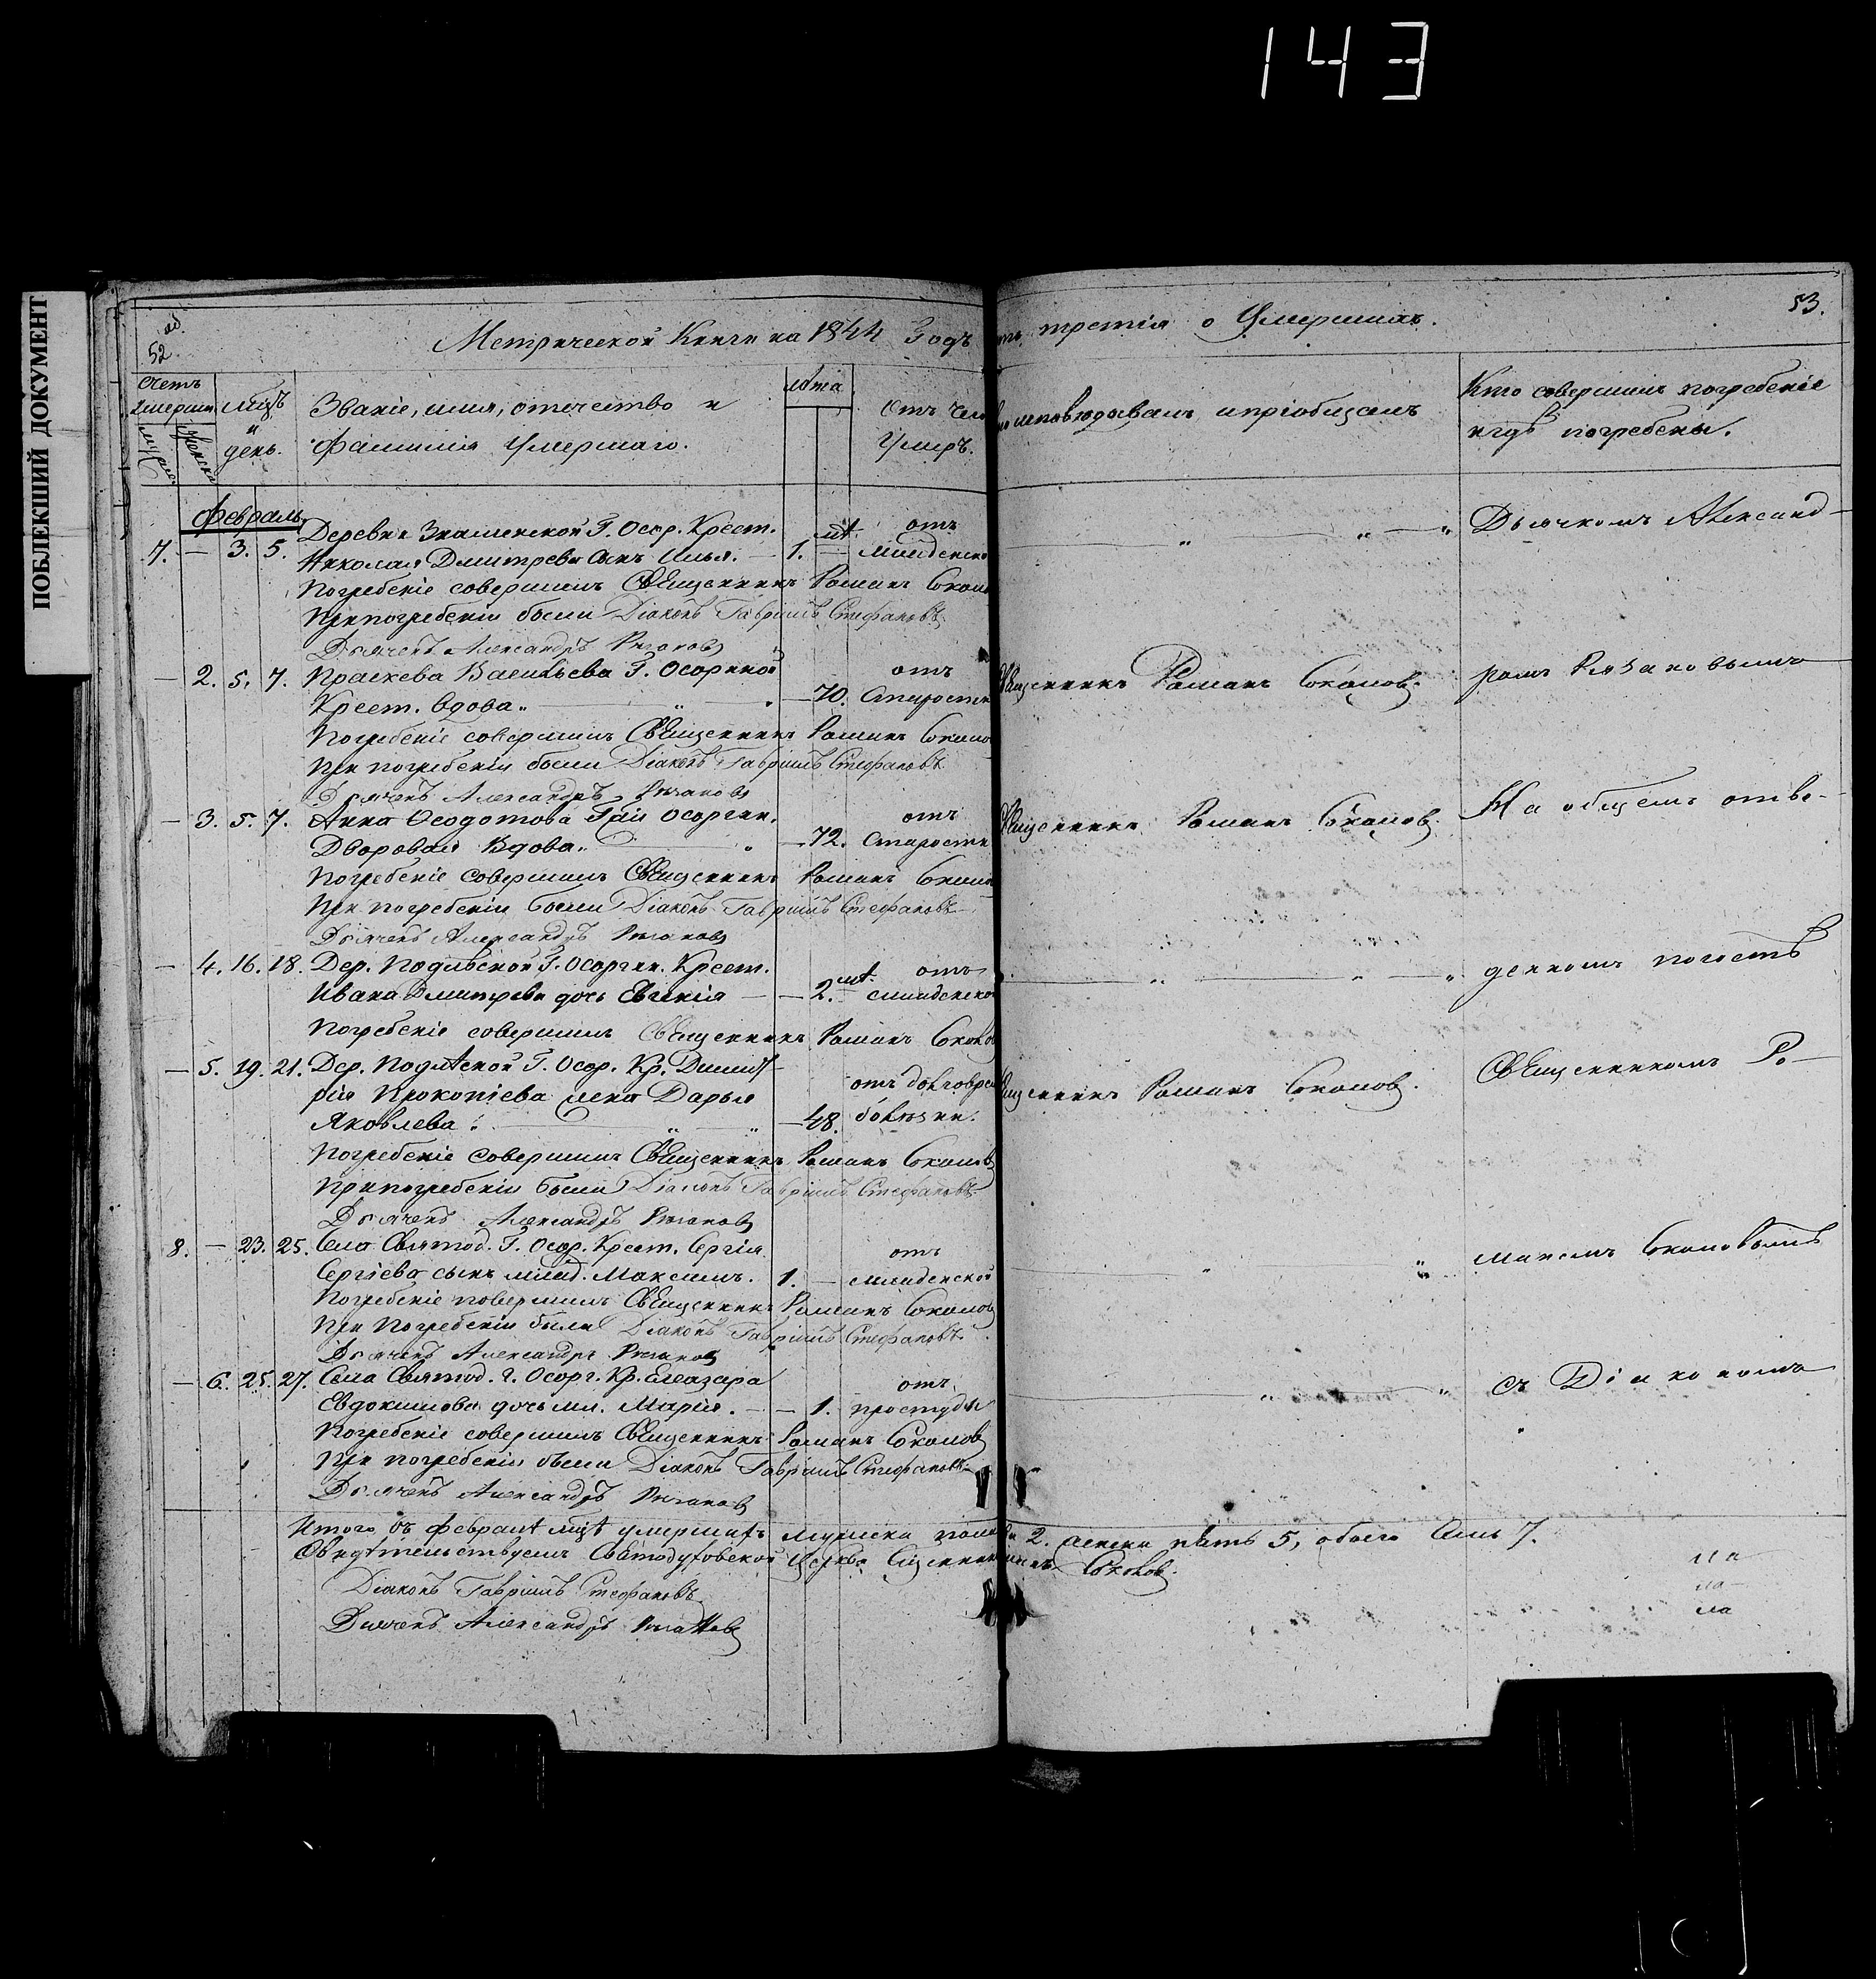 143
ПОБЛЕКШИЙ ДОКУМЕНТ
об.
52.
53.
Метрической Книги на 1844 Годъ
третія о Умершихъ.
Счетъ умерших
мужес. Женска
мцъ и день.
Званіе, имя, отечество и
Фамилія Умершаго.
лѣта
Отъ чего
Умиръ.
исповѣдывалъ и пріобщалъ
Кто совершилъ погребеніе
и гдѣ погребены.
Февраль
Деревни Знаменской Г. Осор. Крест.
7. — 3. 5. Николая Дмитрева сынъ Илья. — 1. — отъ младенско
Погребеніе совершилъ Священникъ Романъ Сокол
При погребеніи были Діаконъ Гавріилъ Стефановъ
Дьячекъ Александръ Рязановъ
Дьячкомъ Александ-
— 2. 5. 7. Праскева Васильева Г. Осоргиной
Крест. вдова. — 70. отъ Старости
Священникъ Романъ Соколовъ.
ромъ Рязановымъ
Погребеніе совершилъ Священникъ Романъ Соколо
При погребеніи были Діаконъ Гавріилъ Стефановъ
Дьячекъ Александръ Рязановъ
— 3. 5. 7. Анна Феодотова Г. Осоргин.
Дворовая Вдова. — 72. отъ Старости
Священникъ Романъ Соколовъ
На общемъ отве-
Погребеніе совершилъ Священникъ Романъ Сокол
При погребеніи были Діаконъ Гавріилъ Стефановъ
Дьячекъ Александръ Рязановъ
— 4. 16. 18. Дер. Подлѣсной Г. Осоргин. Крест.
Ивана Дмитрева дочь Евгенія — 2. отъ младенско
денномъ погостѣ
Погребеніе совершилъ Священникъ Романъ Соколов
— 5. 19. 21. Дер. Подлѣсной Г. Осор. Кр. Димит-
рія Прокопіева жена Дарья
Яковлева. — 48. отъ долговрем болѣзни.
Священникъ Романъ Соколовъ.
Священникомъ Ро-
Погребеніе совершилъ Священникъ Романъ Соколовъ
При погребеніи были Діаконъ Гавріилъ Стефановъ
Дьячекъ Александръ Рязановъ
8. — 23. 25. Села Святод. Г. Осор. Крест. Сергія
Сергіева сынъ млад. Максимъ. 1. — отъ младенской
маномъ Соколовымъ
Погребеніе совершилъ Священникъ Романъ Соколовъ
При Погребеніи были Діаконъ Гавріилъ Стефановъ
Дьячекъ Александръ Рязановъ
— 6. 25. 27. Села Святод. г. Осорг. Кр. Елеазара
Евдокимова дочь мл. Марія. — 1. отъ простуды
съ Діакономъ
Погребеніе совершилъ Священникъ Романъ Соколовъ
При погребеніи были Діаконъ Гавріилъ Стефановъ
Дьячекъ Александръ Рязановъ
Итого въ февралѣ мцѣ умершихъ мужеска пола 2. женска пять 5, обоего семь 7.
Свидѣтельствуемъ Святодуховской Церкви Священникъ Соколовъ.
Діаконъ Гавріилъ Стефановъ
Дьячекъ Александръ Рязановъ